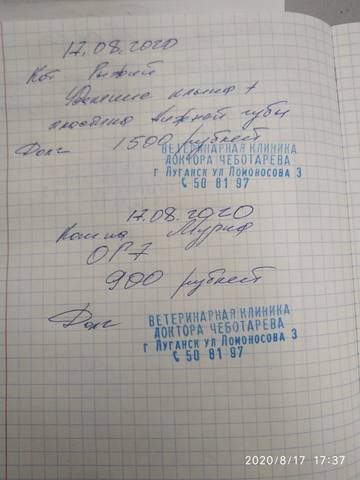 17.08.2020
Кот Рыжий
Удаление клыка +
пластика нижней губы
Долг 1500 рублей
ВЕТЕРИНАРНАЯ КЛИНИКА
ДОКТОРА ЧЕБОТАРЕВА
г Луганск ул Ломоносова 3
50 81 97
17.08.2020
Кошка Мурка
900 рублей
Долг
ВЕТЕРИНАРНАЯ КЛИНИКА
ДОКТОРА ЧЕБОТАРЕВА
г Луганск ул Ломоносова 3
50 81 97
2020/8/17 17:37